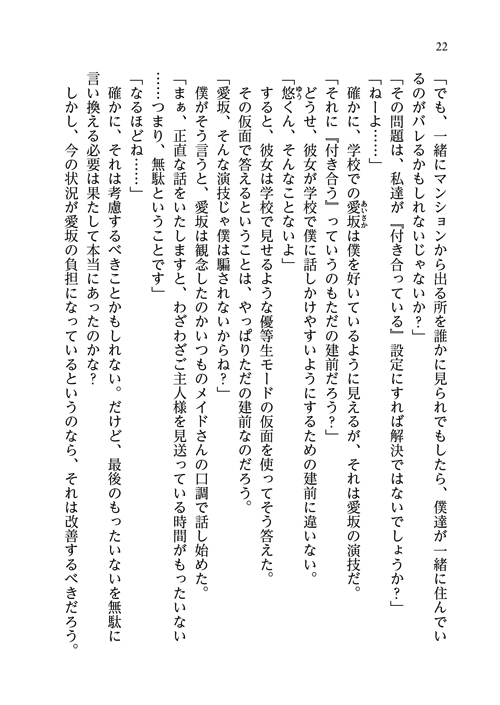 22
「でも、一緒にマンションから出る所を誰かに見られでもしたら、僕達が一緒に住んでい
るのがバレるかもしれないじゃないか？」
「その問題は、私達が『付き合っている』設定にすれば解決ではないでしょうか？」
「ねーよ……」
確かに、学校での愛坂は僕を好いているように見えるが、それは愛坂の演技だ。
「それに『付き合う』っていうのもただの建前だろう？」
どうせ、彼女が学校で僕に話しかけやすいようにするための建前に違いない。
「悠くん、そんなことないよ」
すると、彼女は学校で見せるような優等生モードの仮面を使ってそう答えた。
その仮面で答えるということは、やっぱりただの建前なのだろう。
「愛坂、そんな演技じゃ僕は騙されないからね？」
僕がそう言うと、愛坂は観念したのかいつものメイドさんの口調で話し始めた。
「まぁ、正直な話をいたしますと、わざわざご主人様を見送っている時間がもったいない
……つまり、無駄ということです」
「なるほどね……」
確かに、それは考慮するべきことかもしれない。だけど、最後のもったいないを無駄に
言い換える必要は果たして本当にあったのかな？
しかし、今の状況が愛坂の負担になっているというのなら、それは改善するべきだろう。